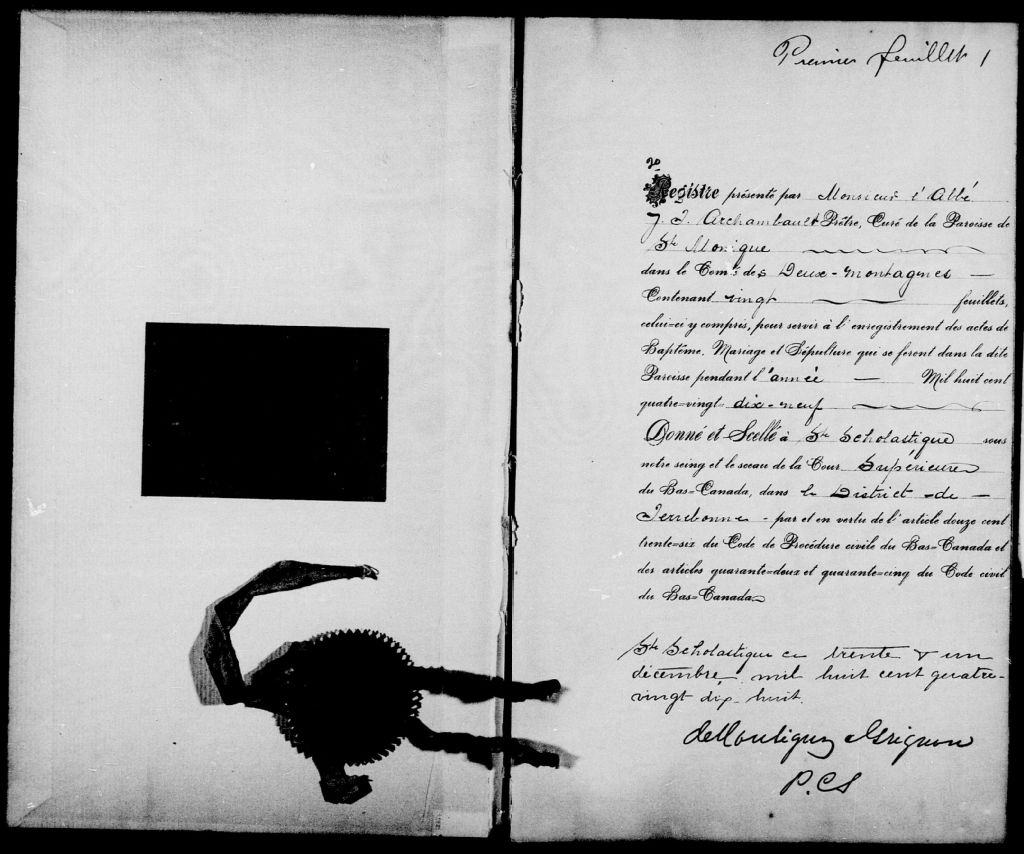 Premier feuillet 1
20
Registre présenté par Monsieur l'Abbé
J. J. Archambault Prêtre, Curé de la Paroisse de
Ste Monique
dans le Comté des Deux-montagnes —
Contenant vingt feuillets,
celui=ci y compris, pour servir à l'enregistrement des actes de
Baptême, Mariage et Sépulture qui se feront dans la dite
Paroisse pendant l'année — Mil huit cent
quatre=vingt= dix-neuf
Donné et Scellé à Ste Scholastique sous
notre seing et le sceau de la Cour Supérieure
du Bas=Canada, dans le District -de-
Terrebonne - par et en vertu de l'article douze cent
trente=six du Code de Procédure civile du Bas=Canada et
des articles quarante=deux et quarante=cinq du Code civil
du Bas=Canada.
Ste Scholastique ce trente & un
décembre mil huit cent quatre-
vingt dix-huit.
de Montigny & Grignon
P.C.S